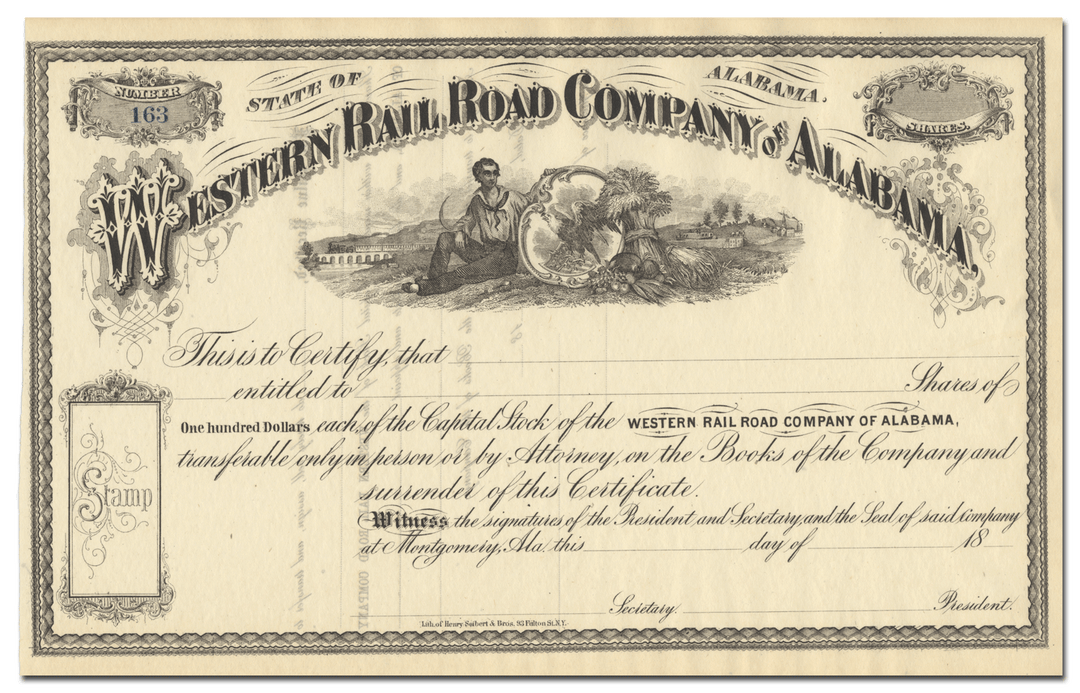 NUMBER
163
STATE OF ALABAMA.
SHARES.
WESTERN RAIL ROAD COMPANY OF ALABAMA
This is to Certify, that
entitled to Shares of
One hundred Dollars each, of the Capital Stock of the WESTERN RAIL ROAD COMPANY OF ALABAMA,
transferable only in person or by Attorney, on the Books of the Company and
surrender of this Certificate.
Witness the signatures of the President and Secretary, and the Seal of said Company
at Montgomery, Ala. this day of 18
Stamp
Secretary. President.
Lith. of Henry Seibert & Bros. 93 Fulton St. N.Y.